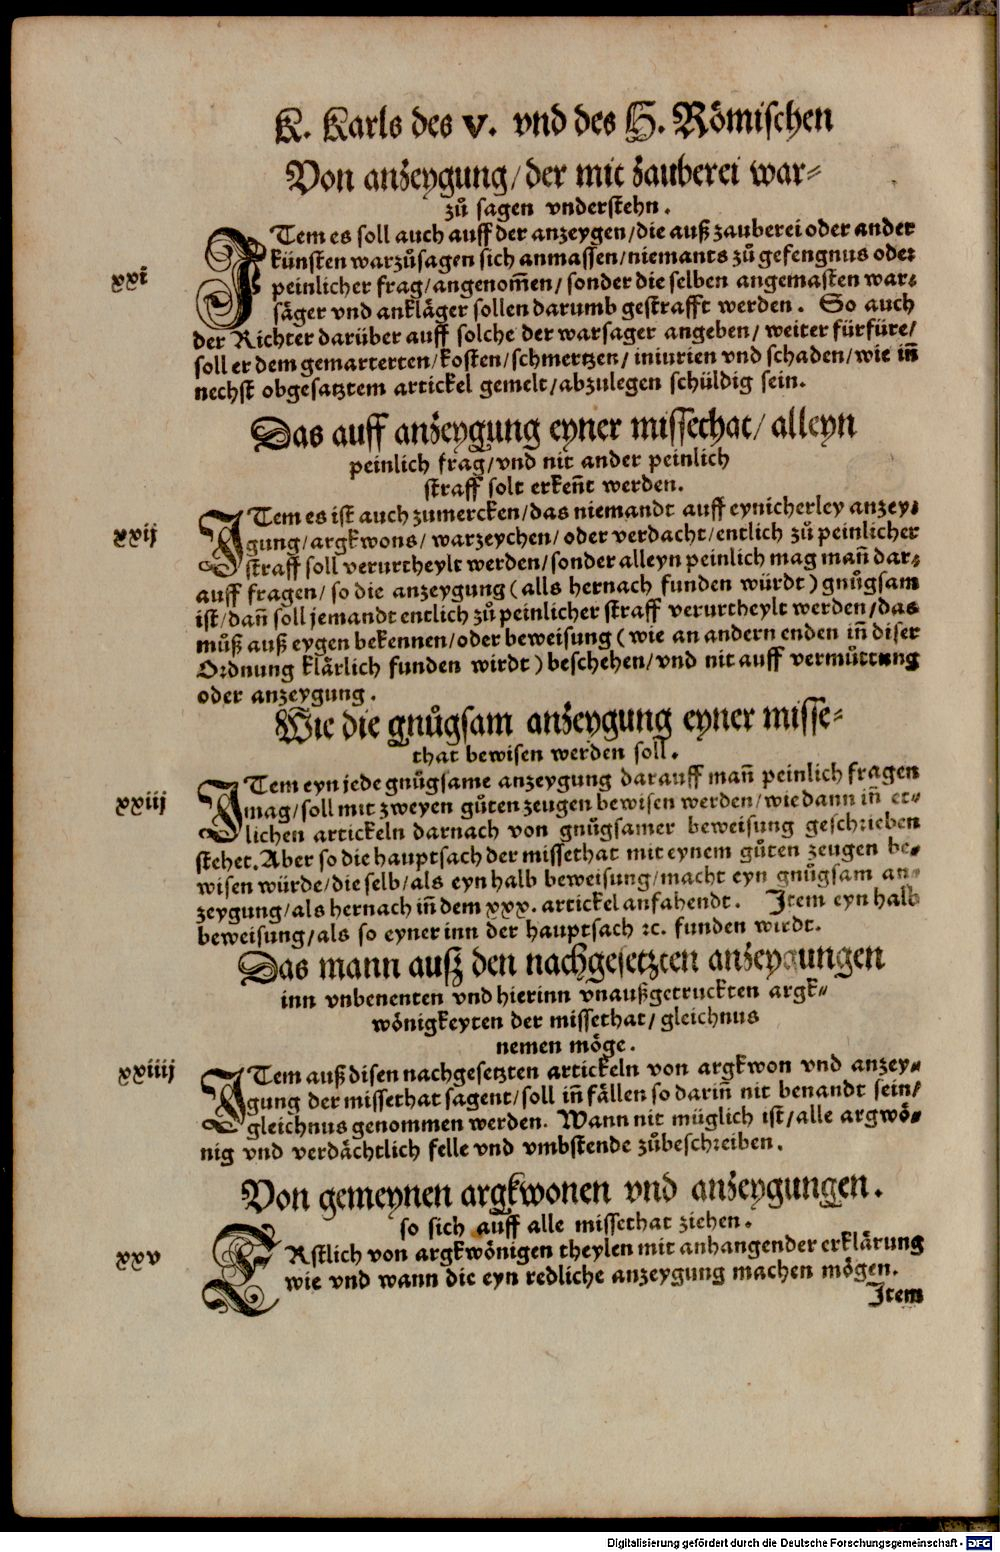 K. Karls des V. vnd des H. Römischen
Von anzeygung/ der mit zauberei war⸗
zů sagen vnderstehn.
xxi
ITem es soll auch auff der anzeygen/die auß zauberei oder ander
künsten warzůsagen sich anmassen/niemants zů gefengnus oder
peinlicher frag/angenom̄en/sonder die selben angemasten war⸗
säger vnd ankläger sollen darumb gestrafft werden. So auch
der Richter darüber auff solche der warsager angeben/ weiter fürfüre/
soll er dem gemarterten/kosten/schmertzen/ iniurien vnd schaden/wie in̄
nechst obgesatztem artickel gemelt/abzulegen schüldig sein.
Das auff anzeygung eyner missethat/ alleyn
peinlich frag/vnd nit ander peinlich
straff solt erken̄t werden.
xxij
ITem es ist auch zumercken/das niemandt auff eynicherley anzey⸗
gung/argkwons/ warzeychen/ oder verdacht/entlich zů peinlicher
straff soll verurtheylt werden/sonder alleyn peinlich mag man̄ dar⸗
auff fragen/ so die anzeygung (alls hernach funden würdt) gnůgsam
ist/dan̄ soll jemandt entlich zů peinlicher straff verurtheylt werden/das
můß auß eygen bekennen/oder beweisung (wie an andern enden in̄ diser
Ordnung klärlich funden wirdt) beschehen/vnd nit auff vermůttung
oder anzeygung.
Wie die gnůgsam anzeygung eyner misse⸗
that bewisen werden soll.
xxiij
ITem eyn jede gnůgsame anzeygung darauff man̄ peinlich fragen
mag/soll mit zweyen gůten zeugen bewisen werden/wie dann in̄ et⸗
lichen artickeln darnach von gnůgsamer beweisung geschrieben
stehet. Aber so die hauptsach der missethat mit eynem gůten zeugen be⸗
wisen würde/die selb/als eyn halb beweisung/macht eyn gnůgsam an⸗
zeygung/als hernach in̄ dem xxx. artickel anfahendt. Item eyn halb
beweisung/als so eyner inn der hauptsach ꝛc. funden wirdt.
Das mann auß den nachgesetzten anzeygungen
inn vnbenenten vnd hierinn vnaußgetruckten argk⸗
wönigkeyten der missethat/ gleichnus
nemen möge.
xxiiij
ITem auß disen nachgesetzten artickeln von argkwon vnd anzey⸗
gung der missethat sagent/soll in̄ fällen so darin̄ nit benandt sein/
gleichnus genommen werden. Wann nit müglich ist/alle argwö⸗
nig vnd verdächtlich felle vnd vmbstende zůbeschreiben.
Von gemeynen argkwonen vnd anzeygungen.
so sich auff alle missethat ziehen.
xxv
ERstlich von argkwönigen theylen mit anhangender erklärung
wie vnd wann die eyn redliche anzeygung machen mögen.
Item
Digitalisierung gefördert durch die Deutsche Forschungsgemeinschaft - DFG